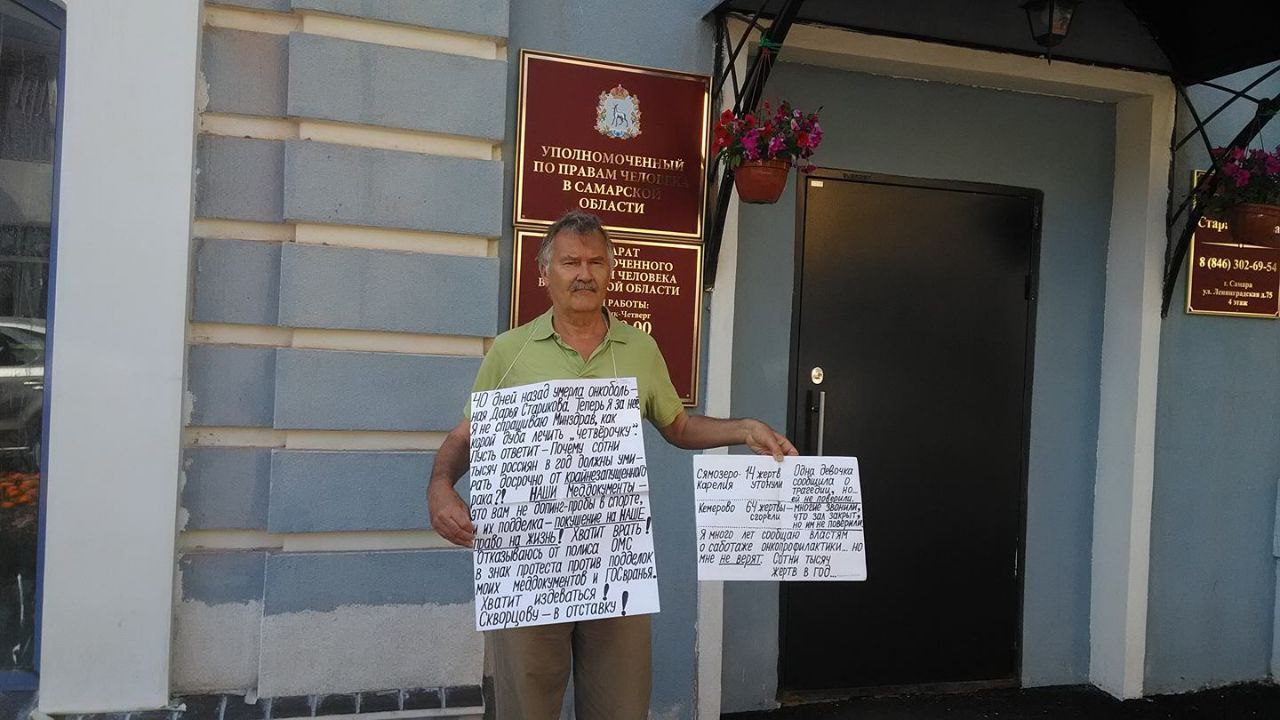 УПОЛНОМОЧЕННЫЙ
ПО ПРАВАМ ЧЕЛОВЕКА
В САМАРСКОЙ
ОБЛАСТИ
ЧЕЛОВЕКА
ОБЛАСТИ
РАБОТЫ:
8 (846) 302-69-54
г. Самара
ул. Ленинградская д.75
4 этаж
40 дней назад умерла онкоболь-
ная Дарья Старикова. Теперь я за неё.
Я не спрашиваю Минздрав, как
корой дуба лечить „четвёрочку".
Пусть ответит – Почему сотни
тысяч россиян в год должны уми-
рать досрочно от крайнезапущенного
рака?! НАШИ Меддокументы –
это вам не допинг-пробы в спорте,
и их подделка – покушение на НАШЕ
право на жизнь! Хватит врать!
Отказываюсь от полиса ОМС
в знак протеста против подделок
моих меддокументов и ГОСвранья.
Хватит издеваться!
Скворцову – в отставку!
Сямозеро- 14 жертв
Карелия утонули
Одна девочка
сообщила о
трагедии, но...
ей не поверили.
Кемерово 64 жертвы
сгорели
– многие звонили,
что зал закрыт,
но им не поверили.
Я много лет сообщаю властям
о саботаже онкопрофилактики... но
мне не верят. Сотни тысяч
жертв в год...